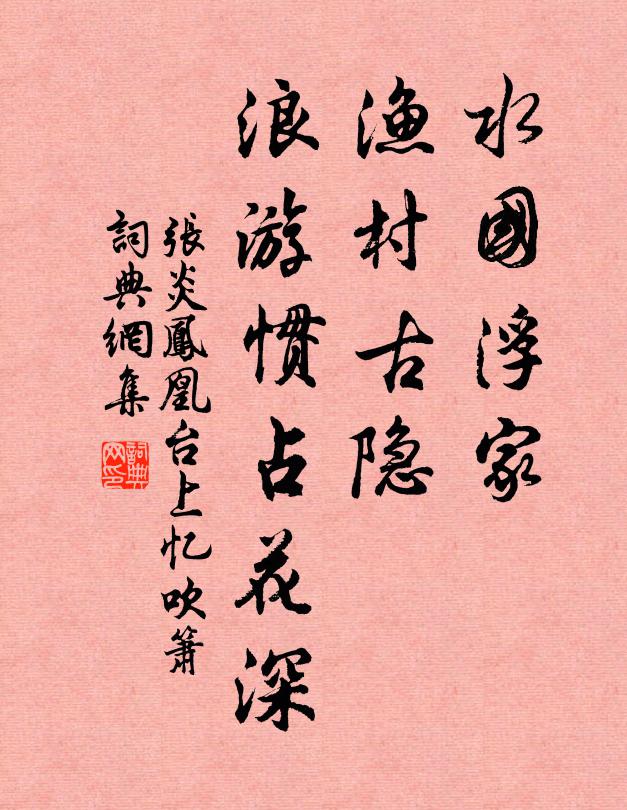 水國浮家
渔村古隐
浪游惯占花深
張炎鳳凰台上忆吹簫
詞典網集
詞典网印